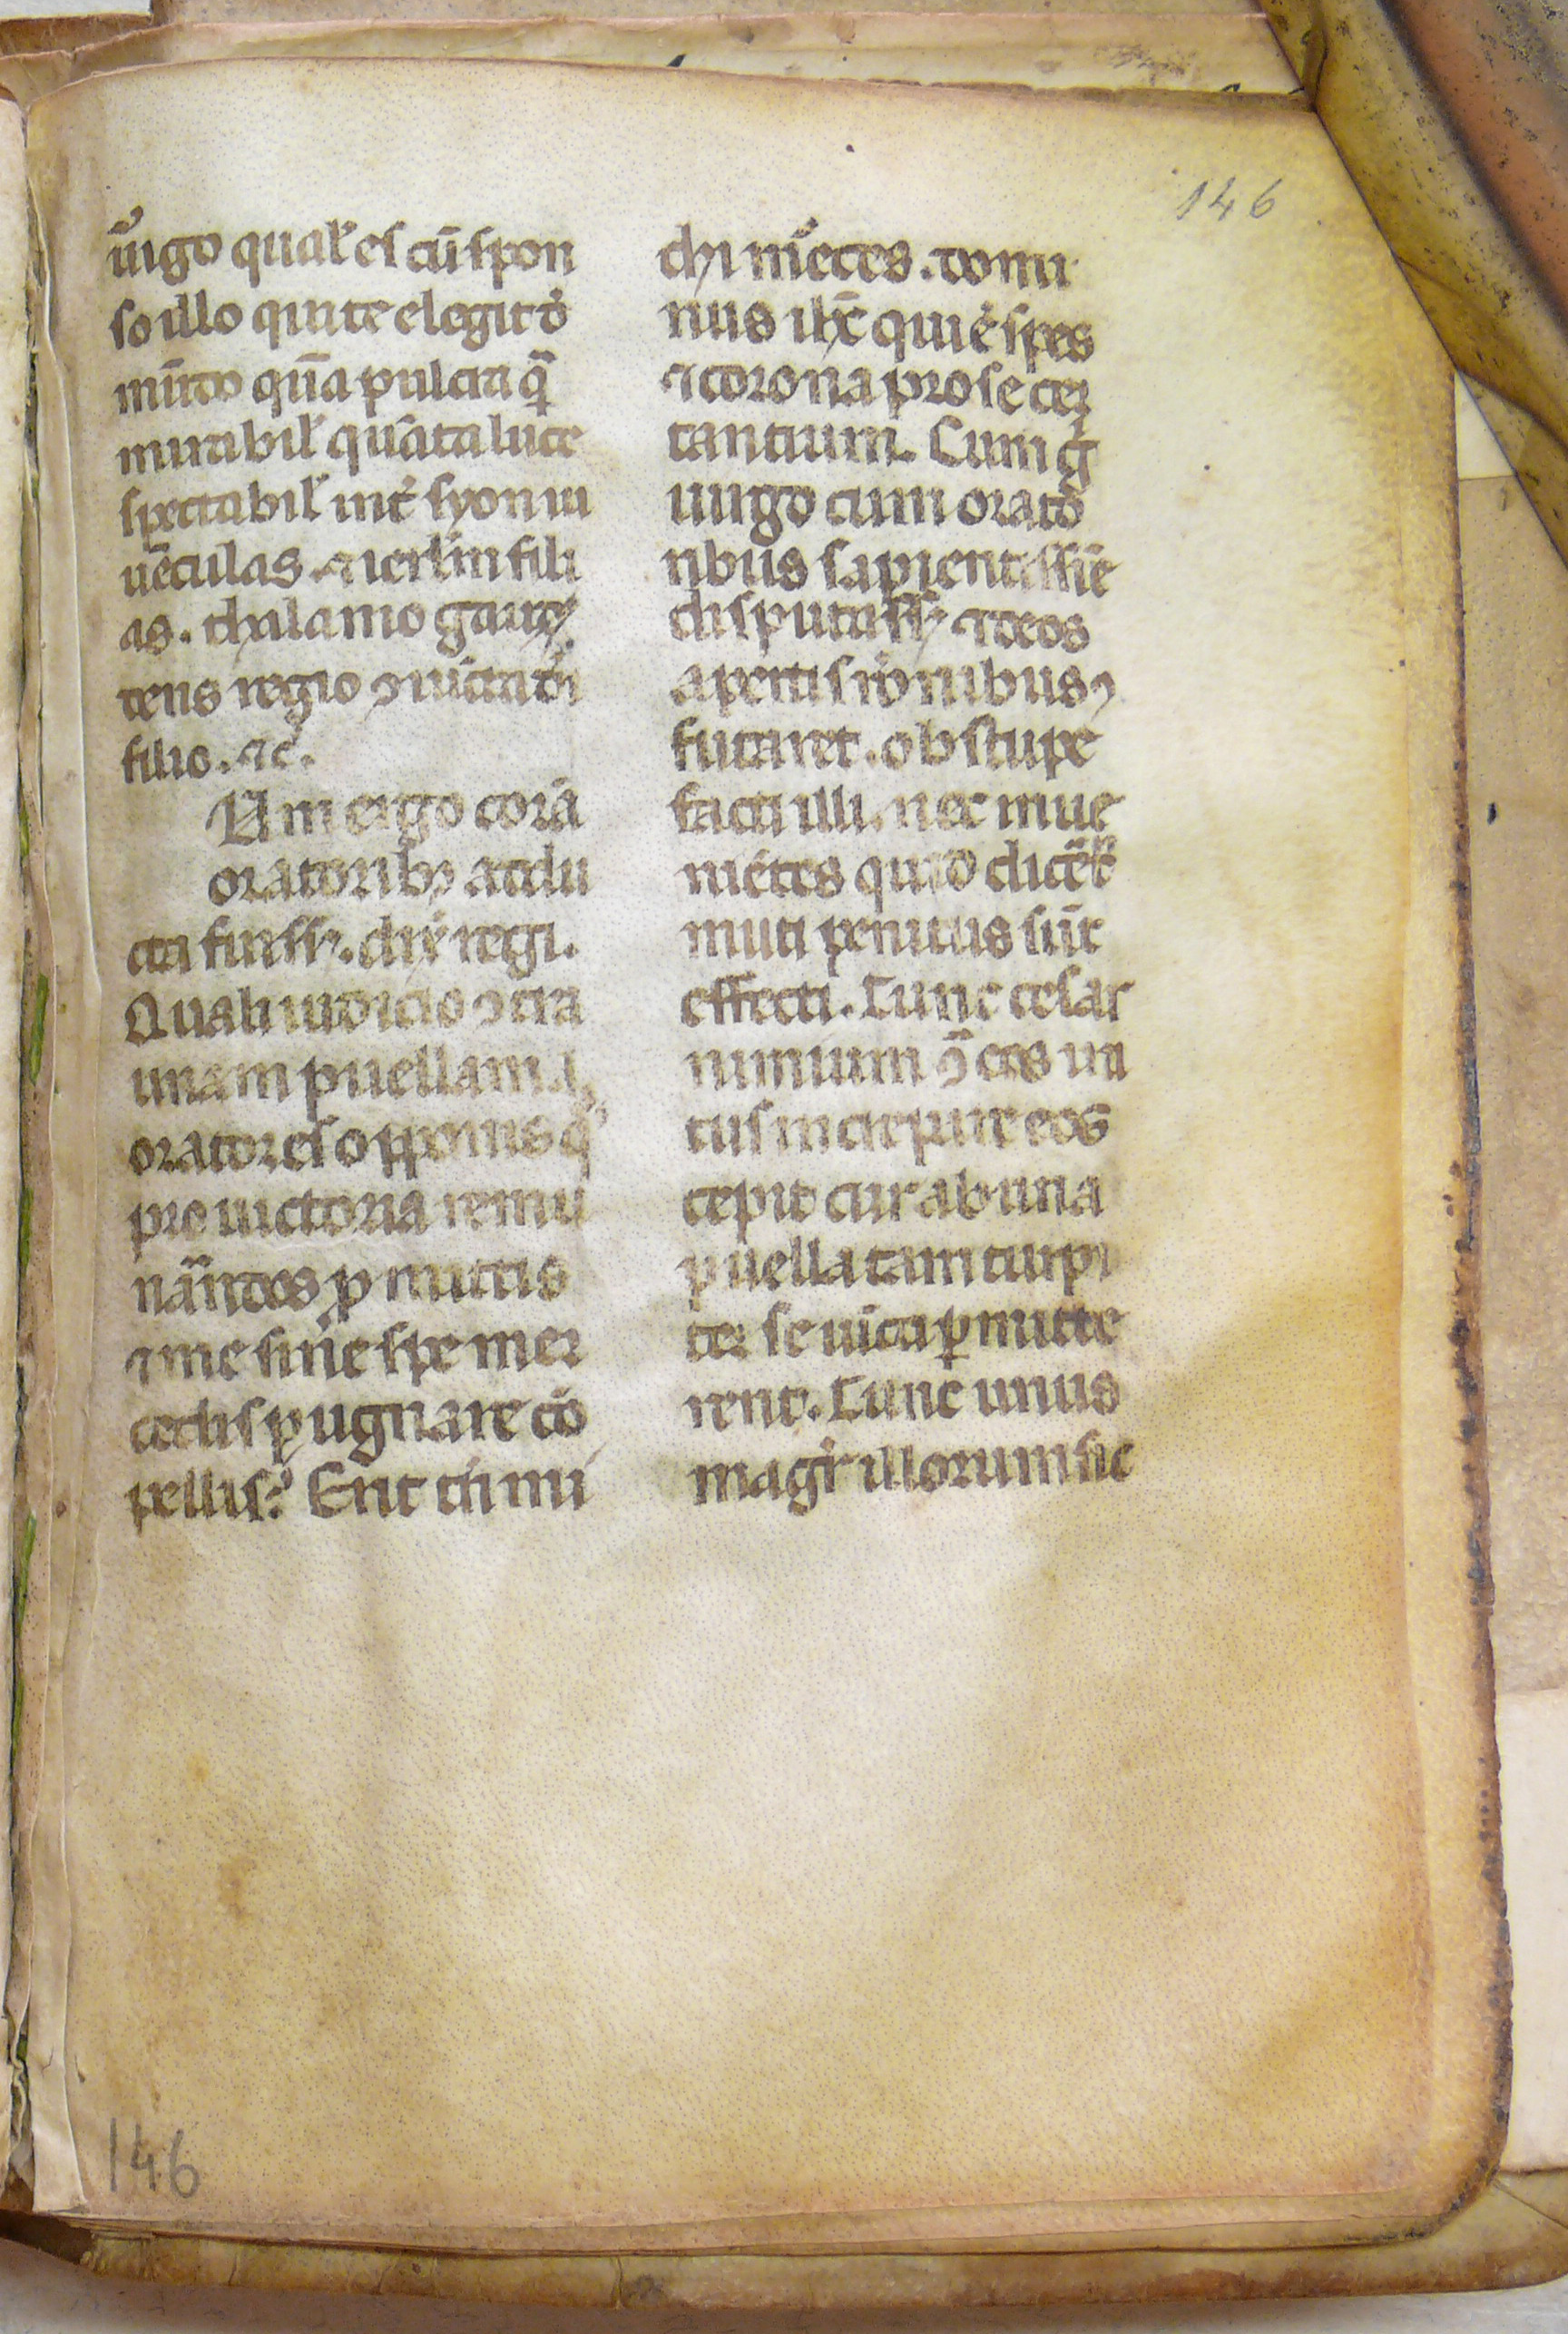 146
uͥigo qual̕ es cū spon
so illo qui te elegit ꝺ̕
mūdo quā pulcra qᷓ
mirabil̕ quāta luce
spectabil̕ int̕ syon iu
uēculas. ⁊ ierl̕m fili
as. thalamo gaud̕
tens regio ꝯiūcta dī
filio. ⁊c̕.
Um ergo corā
oratorib; addu
cta fuiss;. dix̕ regi.
Quali iudicio ꝯtra
unam puellam .l.
oratores opponis qͦs
pro uictoria remu
nāndos ꝓmittis
⁊ me sine spe mer
cedis pugnare cō
pellis? Erit tn̄ mi
chi mēces. domi
nus ihc̄ qui ē spes
⁊ corona pro se cer
tantium. Cum g̊
uirgo cum orato
ribus sapientissīe
disputass; ⁊ deos
apertis rōnibus ꝯ
futaret. obstupe
facti illi. nec inue
niētes quid dicēt
muti penitus sūt
effecti. Tunc cesar
nimium ꝯᷓ eos ira
tus increpare eos
cepit cur ab una
puella tam turpi
ter se uīci ꝑmitte
rent. Tunc unus
magr̄ illorum sic
146